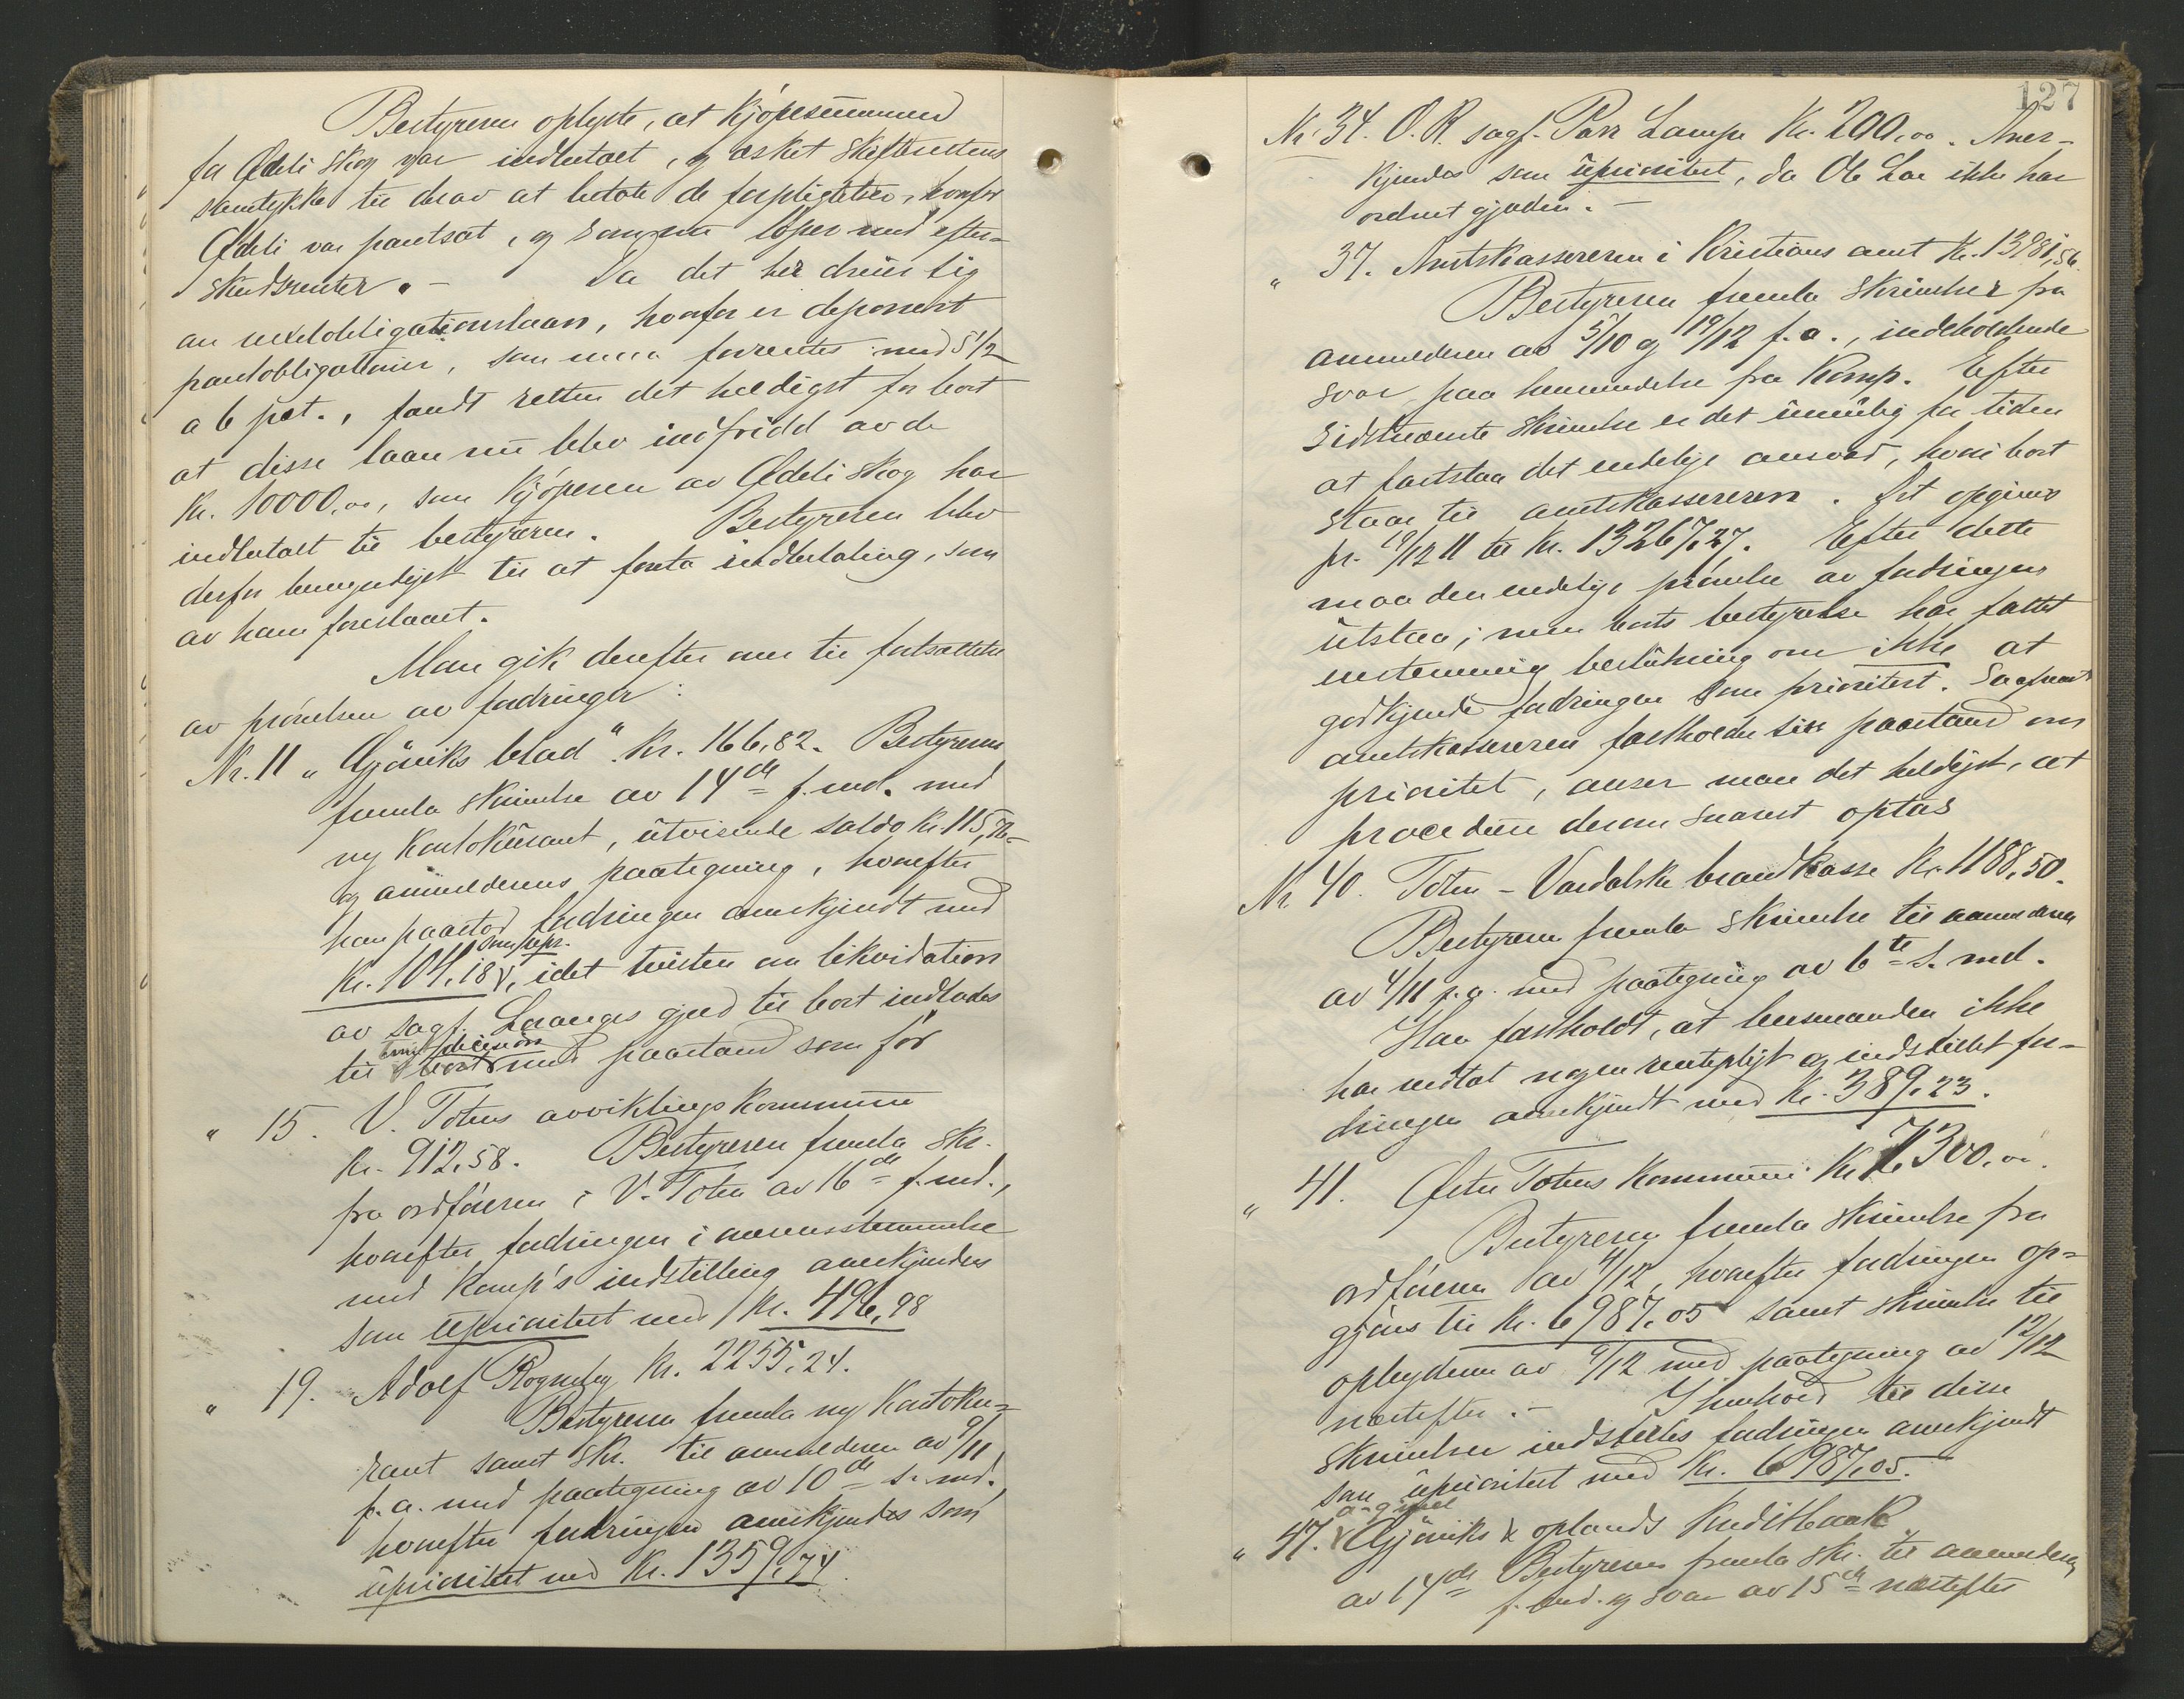 Bestyreren oplyste, at kjøpesummen
for Ødeli skog var indbetalt, og æsket skifterettens
samtykke til derav at betale de forpligtelser, hvorfor
Ødeli var pantsat, og som nu løper med efter-
skudsrenter. – Da det her dreier sig
om vexelobligationslaan, hvorfor er deponert
pantobligationer, som maa forrentes med 5 1/2
a 6 pct., fandt retten det heldigst for boet
at disse laan nu blev indfridd av de
Kr. 10000,oo, som kjøperen av Ødeli skog har
indbetalt til bestyreren. Bestyreren blev
derfor bemyndiget til at foreta indbetaling, som
av ham foreslaaet.
Man gik derefter over til fortsættelse
av prøvelsen av fordringer:
Nr. 11 „Gjøviks blad“. Kr. 166,82. Bestyreren
fremla skrivelse av 14de f. md. med
ny kontokurant, utvisende saldo Kr. 115,
og anmelderens paategning, hvorefter
han paastod fordringen anerkjendt med
som upr.
Kr. 104.18, idet tvisten om likvidation
av sagf. Laanges gjæld til boet indlades
decision
til med paastand som før
" 15. V. Totens avviklingskommune
Kr. 912.58. Bestyreren fremla skr.
fra ordføreren i V. Toten av 16de f. md.,
hvorefter fordringen i overensstemmelse
med Komp's indstilling anerkjendes
som uprioritert med Kr. 496,98
" 19. Adolf Rogneby Kr. 2255.24.
Bestyreren fremla ny kontoku-
rant samt skr. til anmelderen av 9/11
f.a. med paategning av 10de s. md.,
hvorefter fordringen anerkjendes som
uprioritert med Kr. 1359.74
127
Nr. 34. O. R. sagf. Parr Lampe Kr. 200,oo. Aner-
kjendes som uprioritert, da Ole Loe ikke har
ordnet gjælden. –
" 37. Amtskassereren i Kristians amt Kr. 13981,56.
Bestyreren fremla skrivelser fra
anmelderen av 5/10 og 19/12 f.a., indeholdende
svar paa henvendelse fra Komp. Efter
sidstnævnte skrivelse er det umulig for tiden
at fastslaa det endelige ansvar, hvori boet
staar til amtskassereren. Det opgives
pr. 19/12 11 til Kr. 13267,27. Efter dette
maa den endelige prøvelse av fordringen
utstaa; men boets bestyrelse har fattet
enstemmig beslutning om ikke at
godkjende fordringen som prioritert. Saafremt
amtskassereren fastholder sin paastand om
prioritet, anser man det heldigst, at
procedure derom snarest optas
Nr. 40. Toten-Vardalske brandkasse Kr. 1188.50.
Bestyreren fremla skrivelse til anmelderen
av 4/11 f.a. med paategning av 6te s. md.
Han fastholdt, at lensmanden ikke
har vedtat nogen rentepligt og indstillet for-
dringen anerkjendt med Kr. 389.23.
" 41. Østre Totens Kommune Kr. 7300.oo.
Bestyreren fremla skrivelse fra
ordføreren av 4/12, hvorefter fordringen op-
gjøres til Kr. 6987.05 samt skrivelse til
opbyderen av 9/12 med paategning av 12/12
næstefter. – I henhold til disse
skrivelser indstilles fordringen anerkjendt
som uprioritert med Kr. 6987,05.
" 47. Gjøviks & oplands Kreditbank
Bestyreren fremla skr. til anmelderen
av 14de f. md. og svar av 15de næstefter